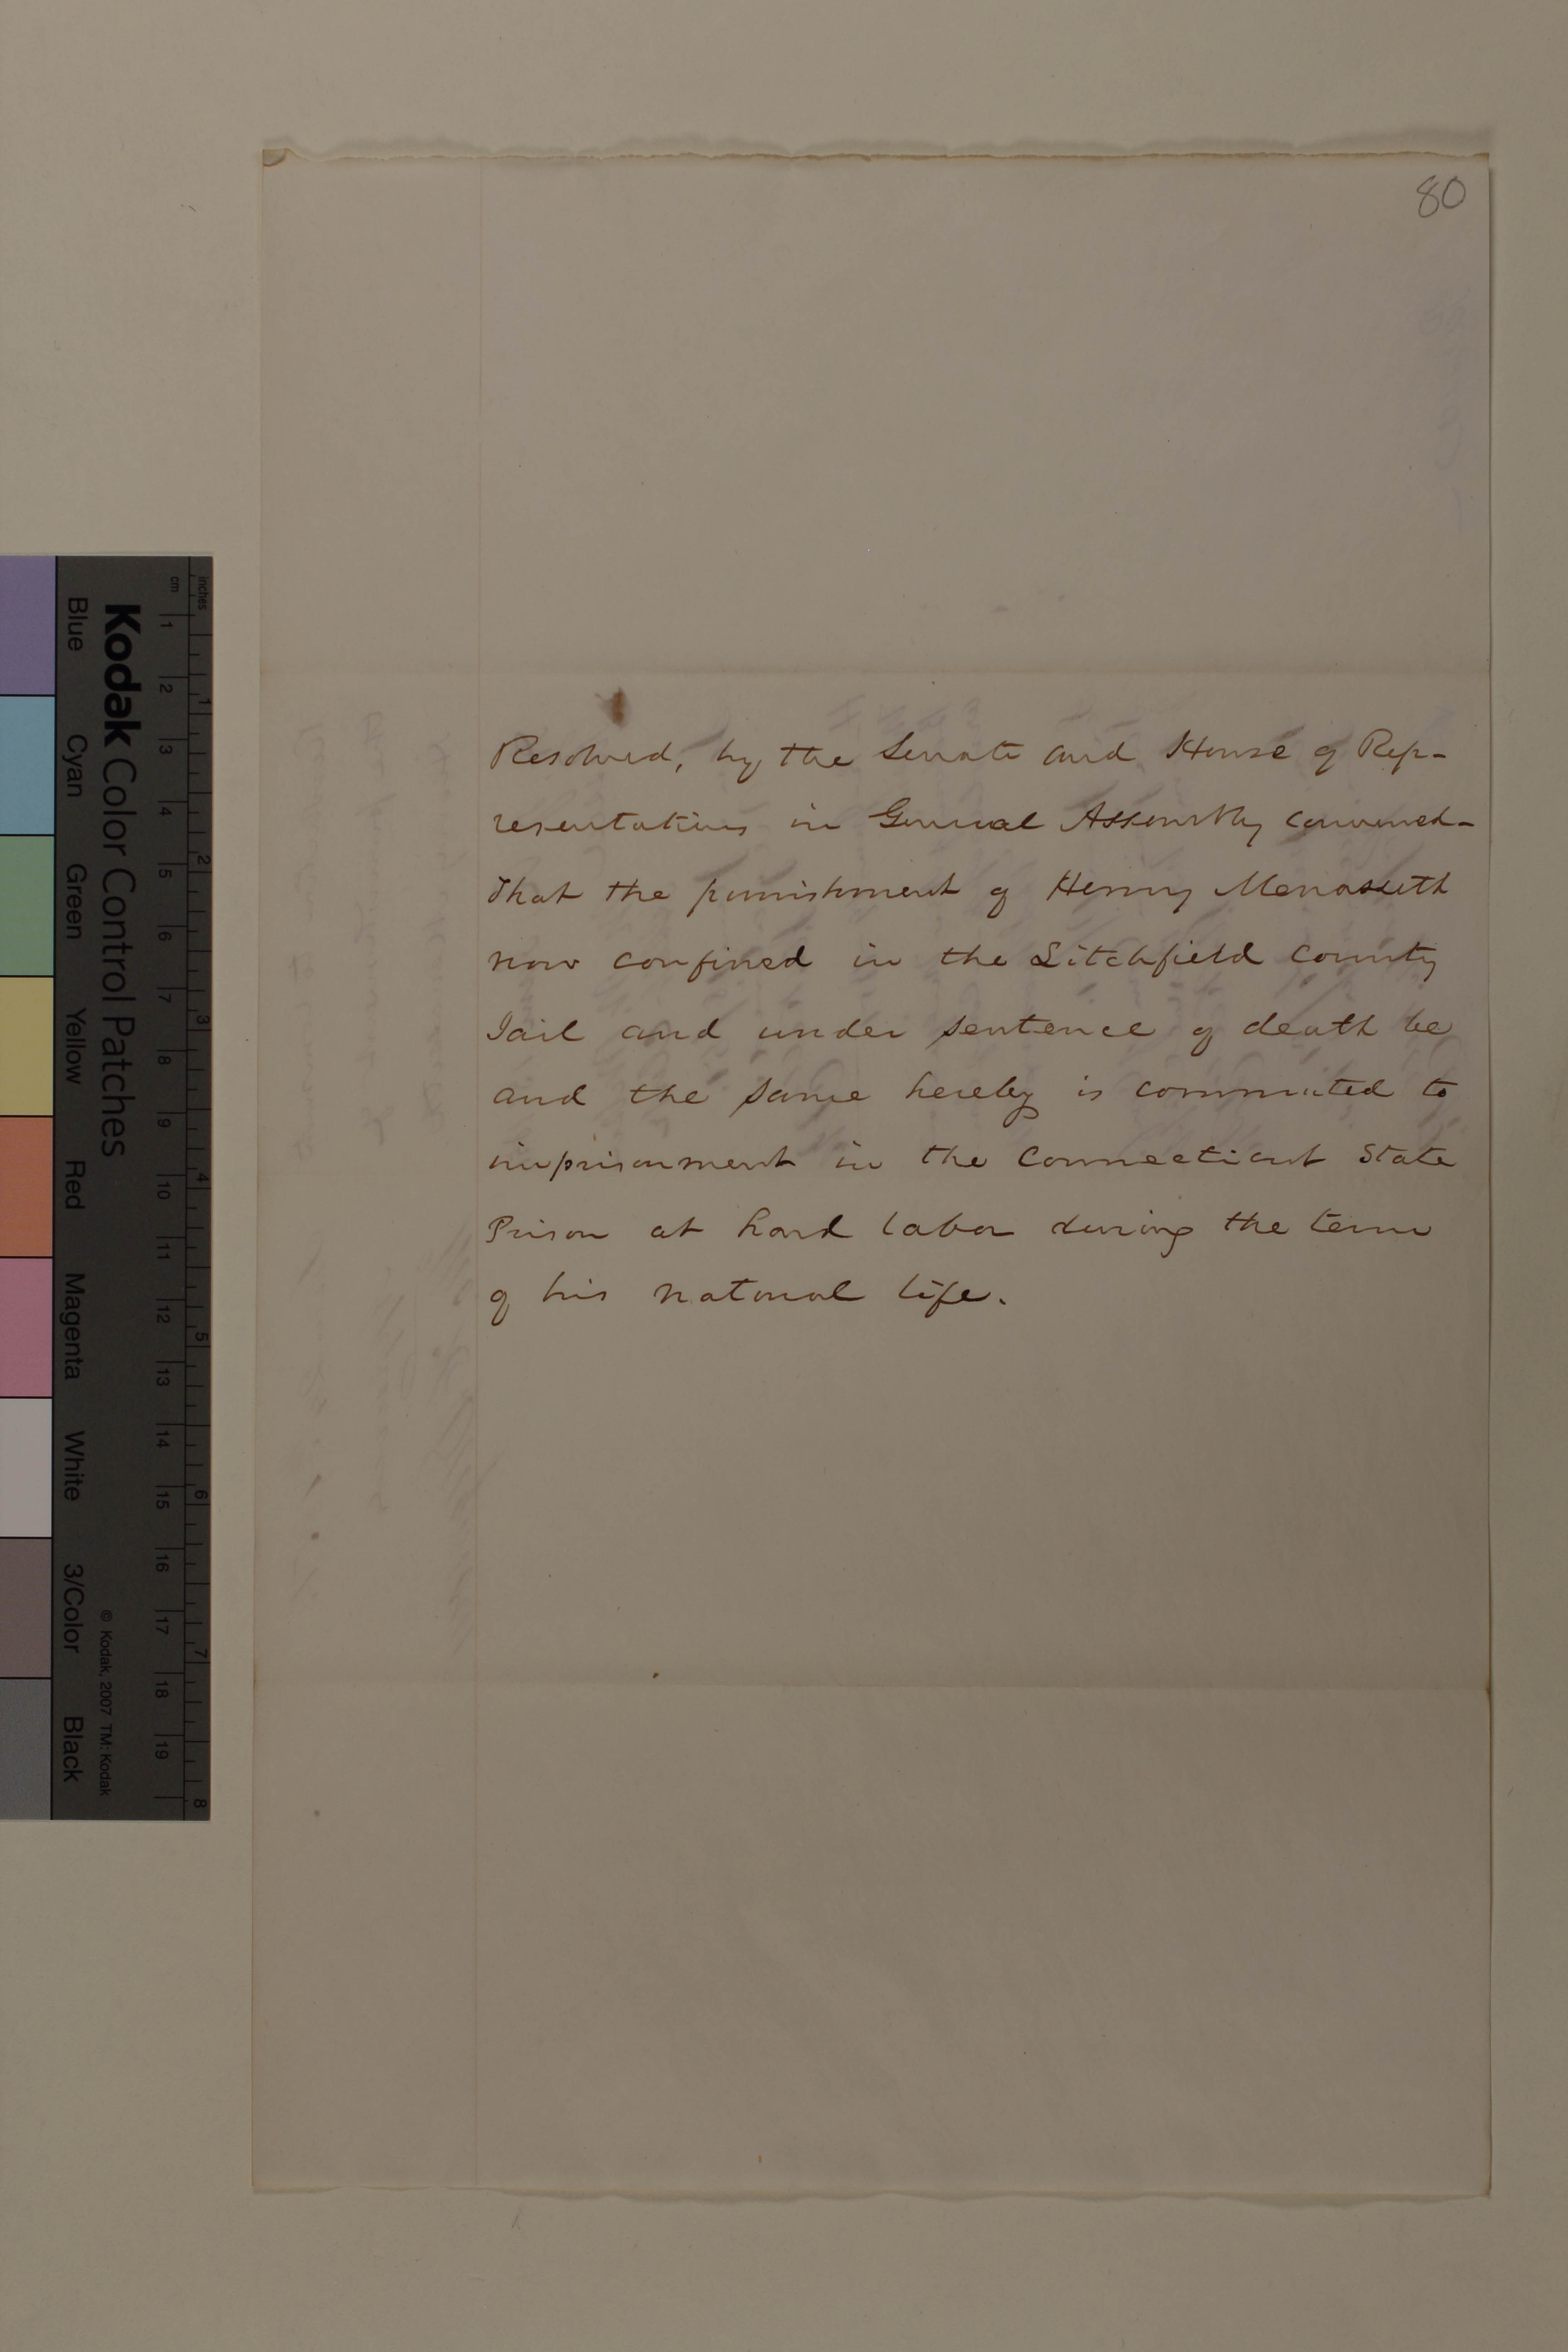 80
Resolved, by the Senate and House of Rep-
resentatives in General Assembly convened-
That the punishment of Henry Menasseth
now confined in the Litchfield County
Jail and under sentence of death be
and the same hereby is commuted to
imprisonment in the Connecticut State
Prison at hard labor during the term
of his natural life.
Kodak Color Control Patches
Blue Cyan Green Yellow Red Magenta White 3/Color Black
© Kodak, 2007 TM: Kodak
cm 1 2 3 4 5 6 7 8 9 10 11 12 13 14 15 16 17 18 19
inches 1 2 3 4 5 6 7 8